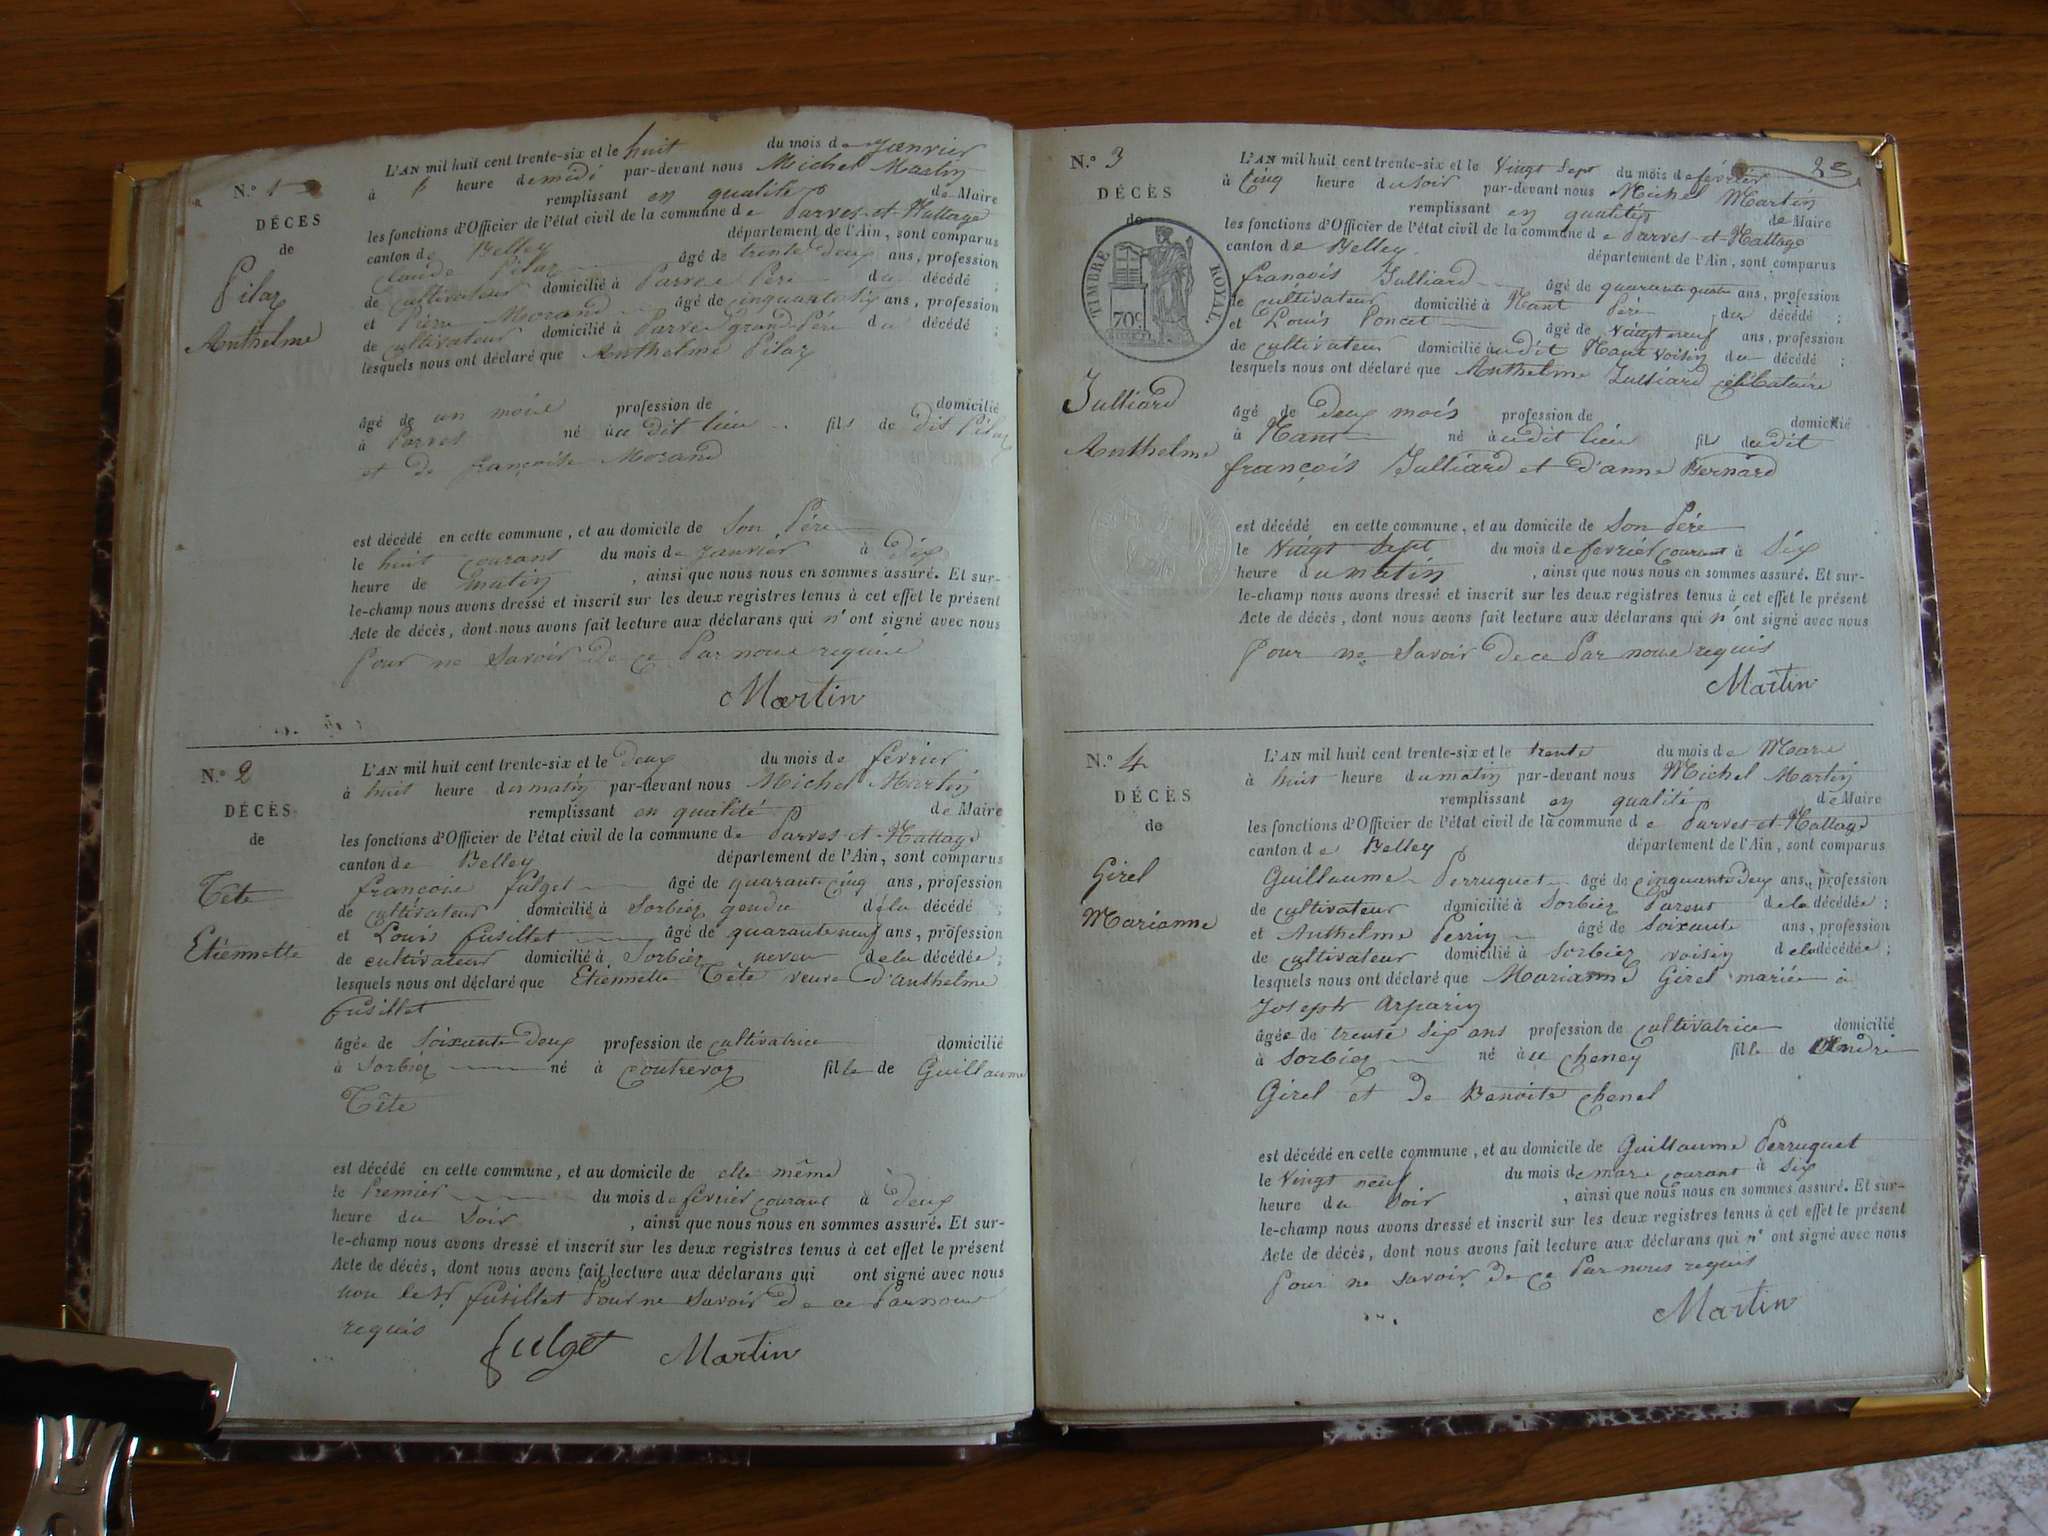 N.º 1
DÉCÈS
de
Pilaz
Anthelme
L'AN mil huit cent trente-six et le huit du mois de janvier
à heure de midi par-devant nous Michel Martin
remplissant en qualité de Maire
les fonctions d'Officier de l'état civil de la commune de Parves et Nattage
canton de Belley département de l'Ain, sont comparus
Claude Pilaz âgé de trente deux ans, profession
de cultivateur domicilié à Parves Père du décédé ;
et Pierre Morand âgé de cinquante six ans, profession
de cultivateur domicilié à Parves grand Père du décédé ;
lesquels nous ont déclaré que Anthelme Pilaz
âgé de un mois profession de domicilié
à Parves né à u dit lieu fils de dit Pilaz
et de françoise Morand
est décédé en cette commune, et au domicile de Son Père
le huit courant du mois de janvier à dix
heure de matin , ainsi que nous nous en sommes assuré. Et sur-
le-champ nous avons dressé et inscrit sur les deux registres tenus à cet effet le présent
Acte de décès, dont nous avons fait lecture aux déclarans qui n'ont signé avec nous
Pour ne Savoir de ce Par nous requis
Martin
N.º 2
DÉCÈS
de
Tête
Etiennette
L'AN mil huit cent trente-six et le deux du mois de février
à huit heure du matin par-devant nous Michel Martin
remplissant en qualité de Maire
les fonctions d'Officier de l'état civil de la commune de Parves et Nattage
canton de Belley département de l'Ain, sont comparus
françois fulget âgé de quarante cinq ans, profession
de cultivateur domicilié à Sorbiez gendre de la décédé ;
et Louis fusillet âgé de quarante neuf ans, profession
de cultivateur domicilié à Sorbiez neveu de la décédée ;
lesquels nous ont déclaré que Etiennette Tête veuve d'Anthelme
fusillet
âgée de Soixante deux profession de cultivatrice domicilié
à Sorbiez né à Contrevoz fille de Guillaume
Tête
est décédé en cette commune, et au domicile de elle même
le Premier du mois de février courant à deux
heure du Soir , ainsi que nous nous en sommes assuré. Et sur-
le-champ nous avons dressé et inscrit sur les deux registres tenus à cet effet le présent
Acte de décès, dont nous avons fait lecture aux déclarans qui ont signé avec nous
non le Sr fusillet Pour ne Savoir de ce Par nous
requis
fulget Martin
25
N.º 3
DÉCÈS
de
TIMBRE ROYAL
70 c
Julliard
Anthelme
L'AN mil huit cent trente-six et le Vingt Sept du mois de février
à Cinq heure du soir par-devant nous Michel Martin
remplissant en qualité de Maire
les fonctions d'Officier de l'état civil de la commune de Parves et Nattage
canton de Belley département de l'Ain, sont comparus
françois Julliard âgé de quarante quatre ans, profession
de cultivateur domicilié à Nant Père du décédé ;
et Louis Poncet âgé de Vingt neuf ans, profession
de cultivateur domicilié à u dit Nant Voisin du décédé ;
lesquels nous ont déclaré que Anthelme Julliard célibataire
âgé de deux mois profession de domicilié
à Nant né à u dit lieu fil du dit
françois Julliard et d'anne Bernard
est décédé en cette commune, et au domicile de Son Père
le Vingt Sept du mois de février courant à Six
heure du matin , ainsi que nous nous en sommes assuré. Et sur-
le-champ nous avons dressé et inscrit sur les deux registres tenus à cet effet le présent
Acte de décès, dont nous avons fait lecture aux déclarans qui n'ont signé avec nous
Pour ne Savoir de ce Par nous requis
Martin
N.º 4
DÉCÈS
de
Girel
Marianne
L'AN mil huit cent trente-six et le trente du mois de Mars
à huit heure du matin par-devant nous Michel Martin
remplissant en qualité de Maire
les fonctions d'Officier de l'état civil de la commune de Parves et Nattage
canton de Belley département de l'Ain, sont comparus
Guillaume Perruquet âgé de cinquante deux ans, profession
de cultivateur domicilié à Sorbiez Parent de la décédée ;
et Anthelme Perrin âgé de Soixante ans, profession
de cultivateur domicilié à Sorbiez voisin de la décédée ;
lesquels nous ont déclaré que Marianne Girel mariée à
Joseph Arparin
âgée de trente Six ans profession de cultivatrice domicilié
à Sorbiez né à u Cheney fille de André
Girel et de Benoite Chenel
est décédé en cette commune, et au domicile de Guillaume Perruquet
le Vingt neuf du mois de mars courant à Six
heure du Soir , ainsi que nous nous en sommes assuré. Et sur-
le-champ nous avons dressé et inscrit sur les deux registres tenus à cet effet le présent
Acte de décès, dont nous avons fait lecture aux déclarans qui n'ont signé avec nous
Pour ne Savoir de ce Par nous requis
Martin